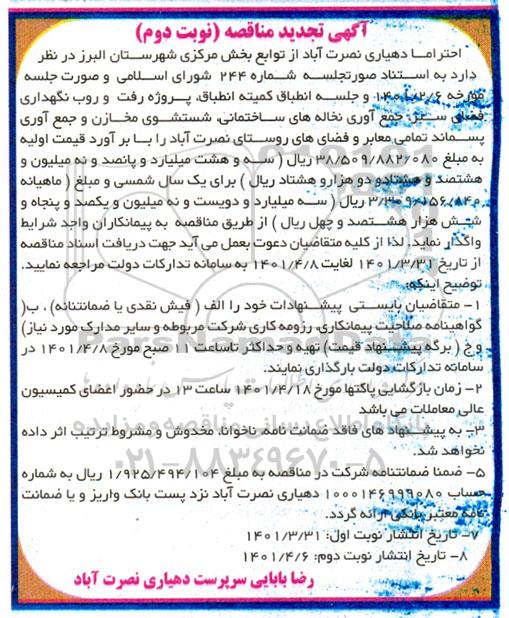 آگهی تجدید مناقصه (نوبت دوم)
احتراما دهیاری نصرت آباد از توابع بخش مرکزی شهرستان البرز در نظر
دارد به استناد صورتجلسه شماره ۲۴۴ شورای اسلامی و صورت جلسه
مورخه ۱۴۰۱/۲/۶ و جلسه انطباق کمیته انطباق، پروژه رفت و روب نگهداری
فضای سبز، جمع آوری نخاله های ساختمانی، شستشوی مخازن و جمع آوری
پسماند تمامی معابر و فضای های روستای نصرت آباد را با بر آورد قیمت اولیه
به مبلغ ۳۸/۵۰۹/۸۸۲/۰۸۰ ریال ( سه و هشت میلیارد و پانصد و نه میلیون و
هشتصد و هشتادو دو هزارو هشتاد ریال ) برای یک سال شمسی و مبلغ ( ماهیانه
ریال ( سه میلیارد و دویست و نه میلیون و یکصد و پنجاه و
شش هزار هشتصد و چهل ریال ) از طریق مناقصه به پیمانکاران واجد شرایط
واگذار نماید. لذا از کلیه متقاضیان دعوت بعمل می آید جهت دریافت اسناد مناقصه
از تاریخ ۱۴۰۱/۳/۳۱ لغایت ۱۴۰۱/۴/۸ به سامانه تدارکات دولت مراجعه نمایید.
توضیح اینکه:
۱- متقاضیان بایستی پیشنهادات خود را الف ( فیش نقدی یا ضمانتنامه) . ب(
گواهینامه صلاحیت پیمانکاری، رزومه کاری شرکت مربوطه و سایر مدارک مورد نیاز)
و ج ( برگه پیشنهاد قیمت) تهیه و حداکثر تاساعت ۱۱ صبح مورخ ۱۴۰۱/۴/۸ در
سامانه تدارکات دولت بارگذاری نمایند.
۲- زمان بازگشایی پاکتها مورخ ۱۴۰۱/۴/۱۸ ساعت ۱۳ در حضور اعضای کمیسیون
عالی معاملات می باشد
۳- به پیشنهاد های فاقد ضمانت نامه، ناخوانا، مخدوش و مشروط ترتیب اثر داده
نخواهد شد.
۵- ضمنا ضمانتنامه شرکت در مناقصه به مبلغ ۱/۹۲۵/۴۹۴/۱۰۴ ریال به شماره
حساب ۱۰۰۰۱۴۶۹۹۹۰۸۰ دهیاری نصرت آباد نزد پست بانک واریز و یا ضمانت
نامه معتبر بانکی ارائه گردد.
۷- تاریخ انتشار نوبت اول: ۱۴۰۱/۳/۳۱
۸- تاریخ انتشار نوبت دوم: ۱۴۰۱/۴/۶
رضا بابایی سرپرست دهیاری نصرت آباد
پایگاه اطلاع رسانی مناقصه و مزایده
۰۲۱-۸۸۳۴۹۶۷۰-۵